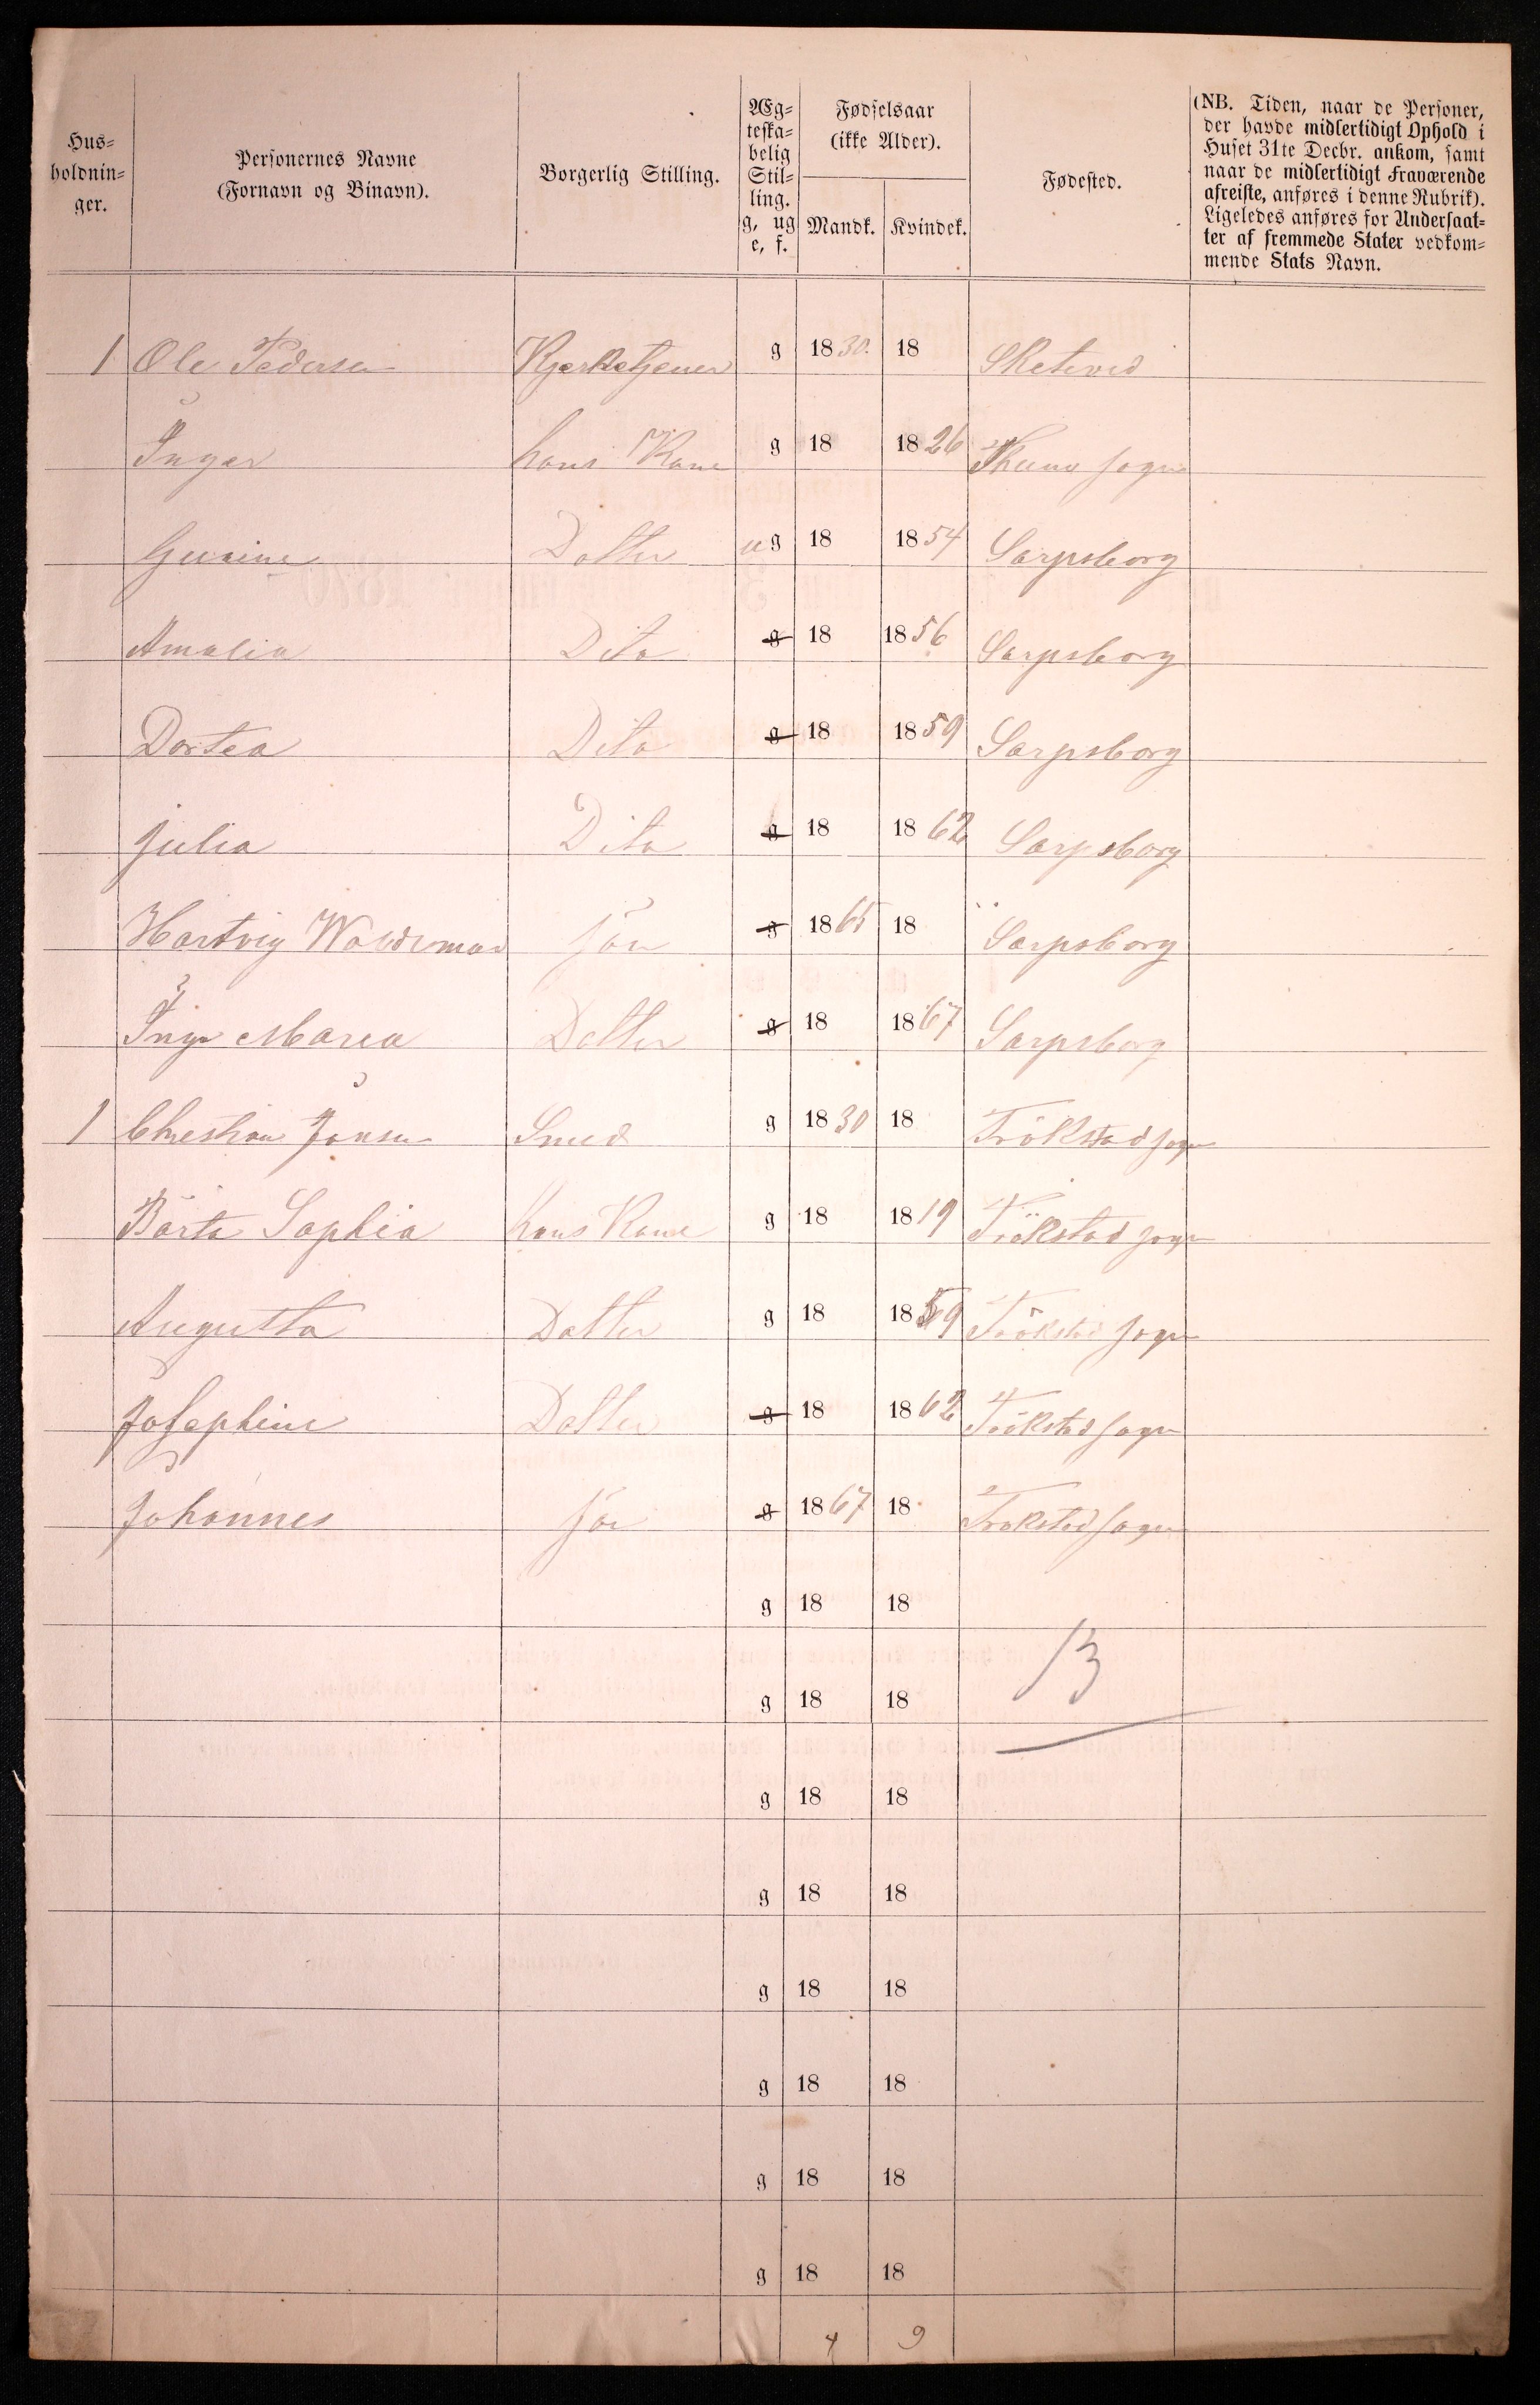 Hus-
holdnin-
ger.
Personernes Navne
(Fornavn og Binavn).
Borgerlig Stilling.
Æg-
teska-
belig
Stil-
ling.
g, ug
e, f.
Fødselsaar
(ikke Alder).
Mandk. Kvindek.
Fødested.
(NB. Tiden, naar de Personer,
der havde midlertidigt Ophold i
Huset 31te Decbr. ankom, samt
naar de midlertidigt Fraværende
afreiste, anføres i denne Rubrik).
Ligeledes anføres for Undersaat-
ter af fremmede Stater vedkom-
mende Stats Navn.
1 Ole Pedersen Kjerketjener g 1830. 18 Sketved
Inger hans Kone g 18 1826 Thuno sogn
Gunine Dotter ug 18 1854 Sarpsborg
Amalia Dito g 18 1856 Sarpsborg
Dortea Dito g 18 1859 Sarpsborg
Julia Dito g 18 1862 Sarpsborg
Hartvig Woldemar Sön g 1865 18 Sarpsborg
Inga Maria Dotter g 18 1867 Sarpsborg
1 Christian Jonsen Smed g 1830 18 Trökstad sogn
Bärte Sophia hans Kone g 18 1819 Trökstad sogn
Augusta Dotter g 18 1859 Trökstad sogn
Josephine Dotter g 18 1862 Trökstad sogn
Johannes Sön g 1867 18 Trokstad sogn
g 18 18
13
g 18 18
g 18 18
g 18 18
g 18 18
g 18 18
g 18 18
g 18 18
4 9